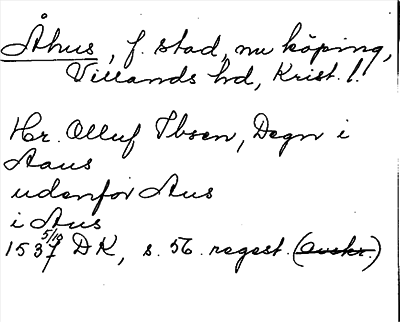 Åhus, f. stad, nu köping,
Villands hd, Krist. l.
Hr. Olluf Ibsen, Degn i
Aaus
udenfor Aus
i Aus
1537 5/10 DK, s. 56. regest. (avskr.)